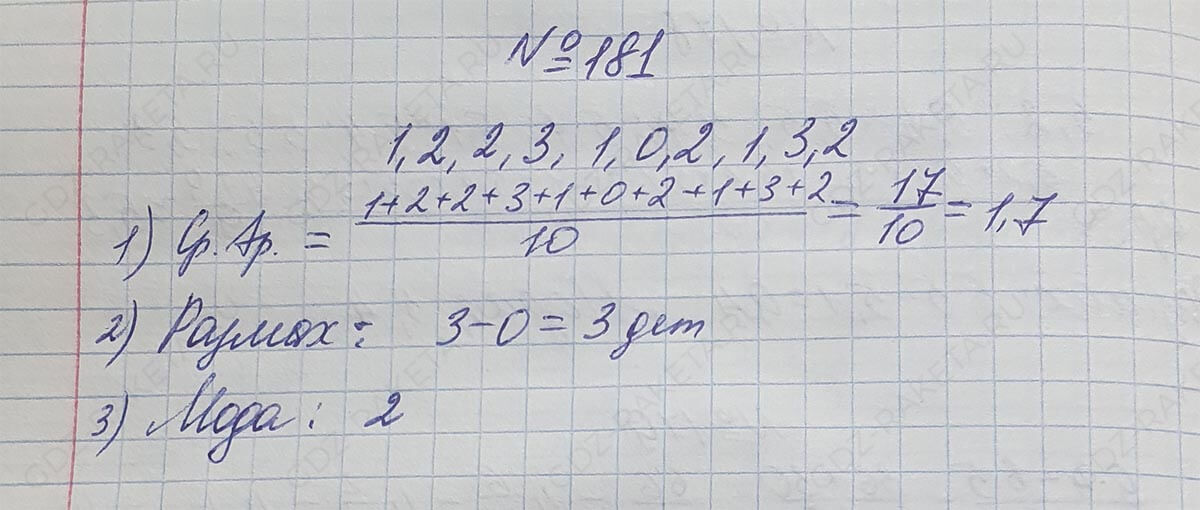 №181
1, 2, 2, 3, 1, 0, 2, 1, 3, 2
1) Ср. Ар. = (1+2+2+3+1+0+2+1+3+2)/10 = 17/10 = 1,7
2) Размах: 3-0=3 дет
3) Мода: 2